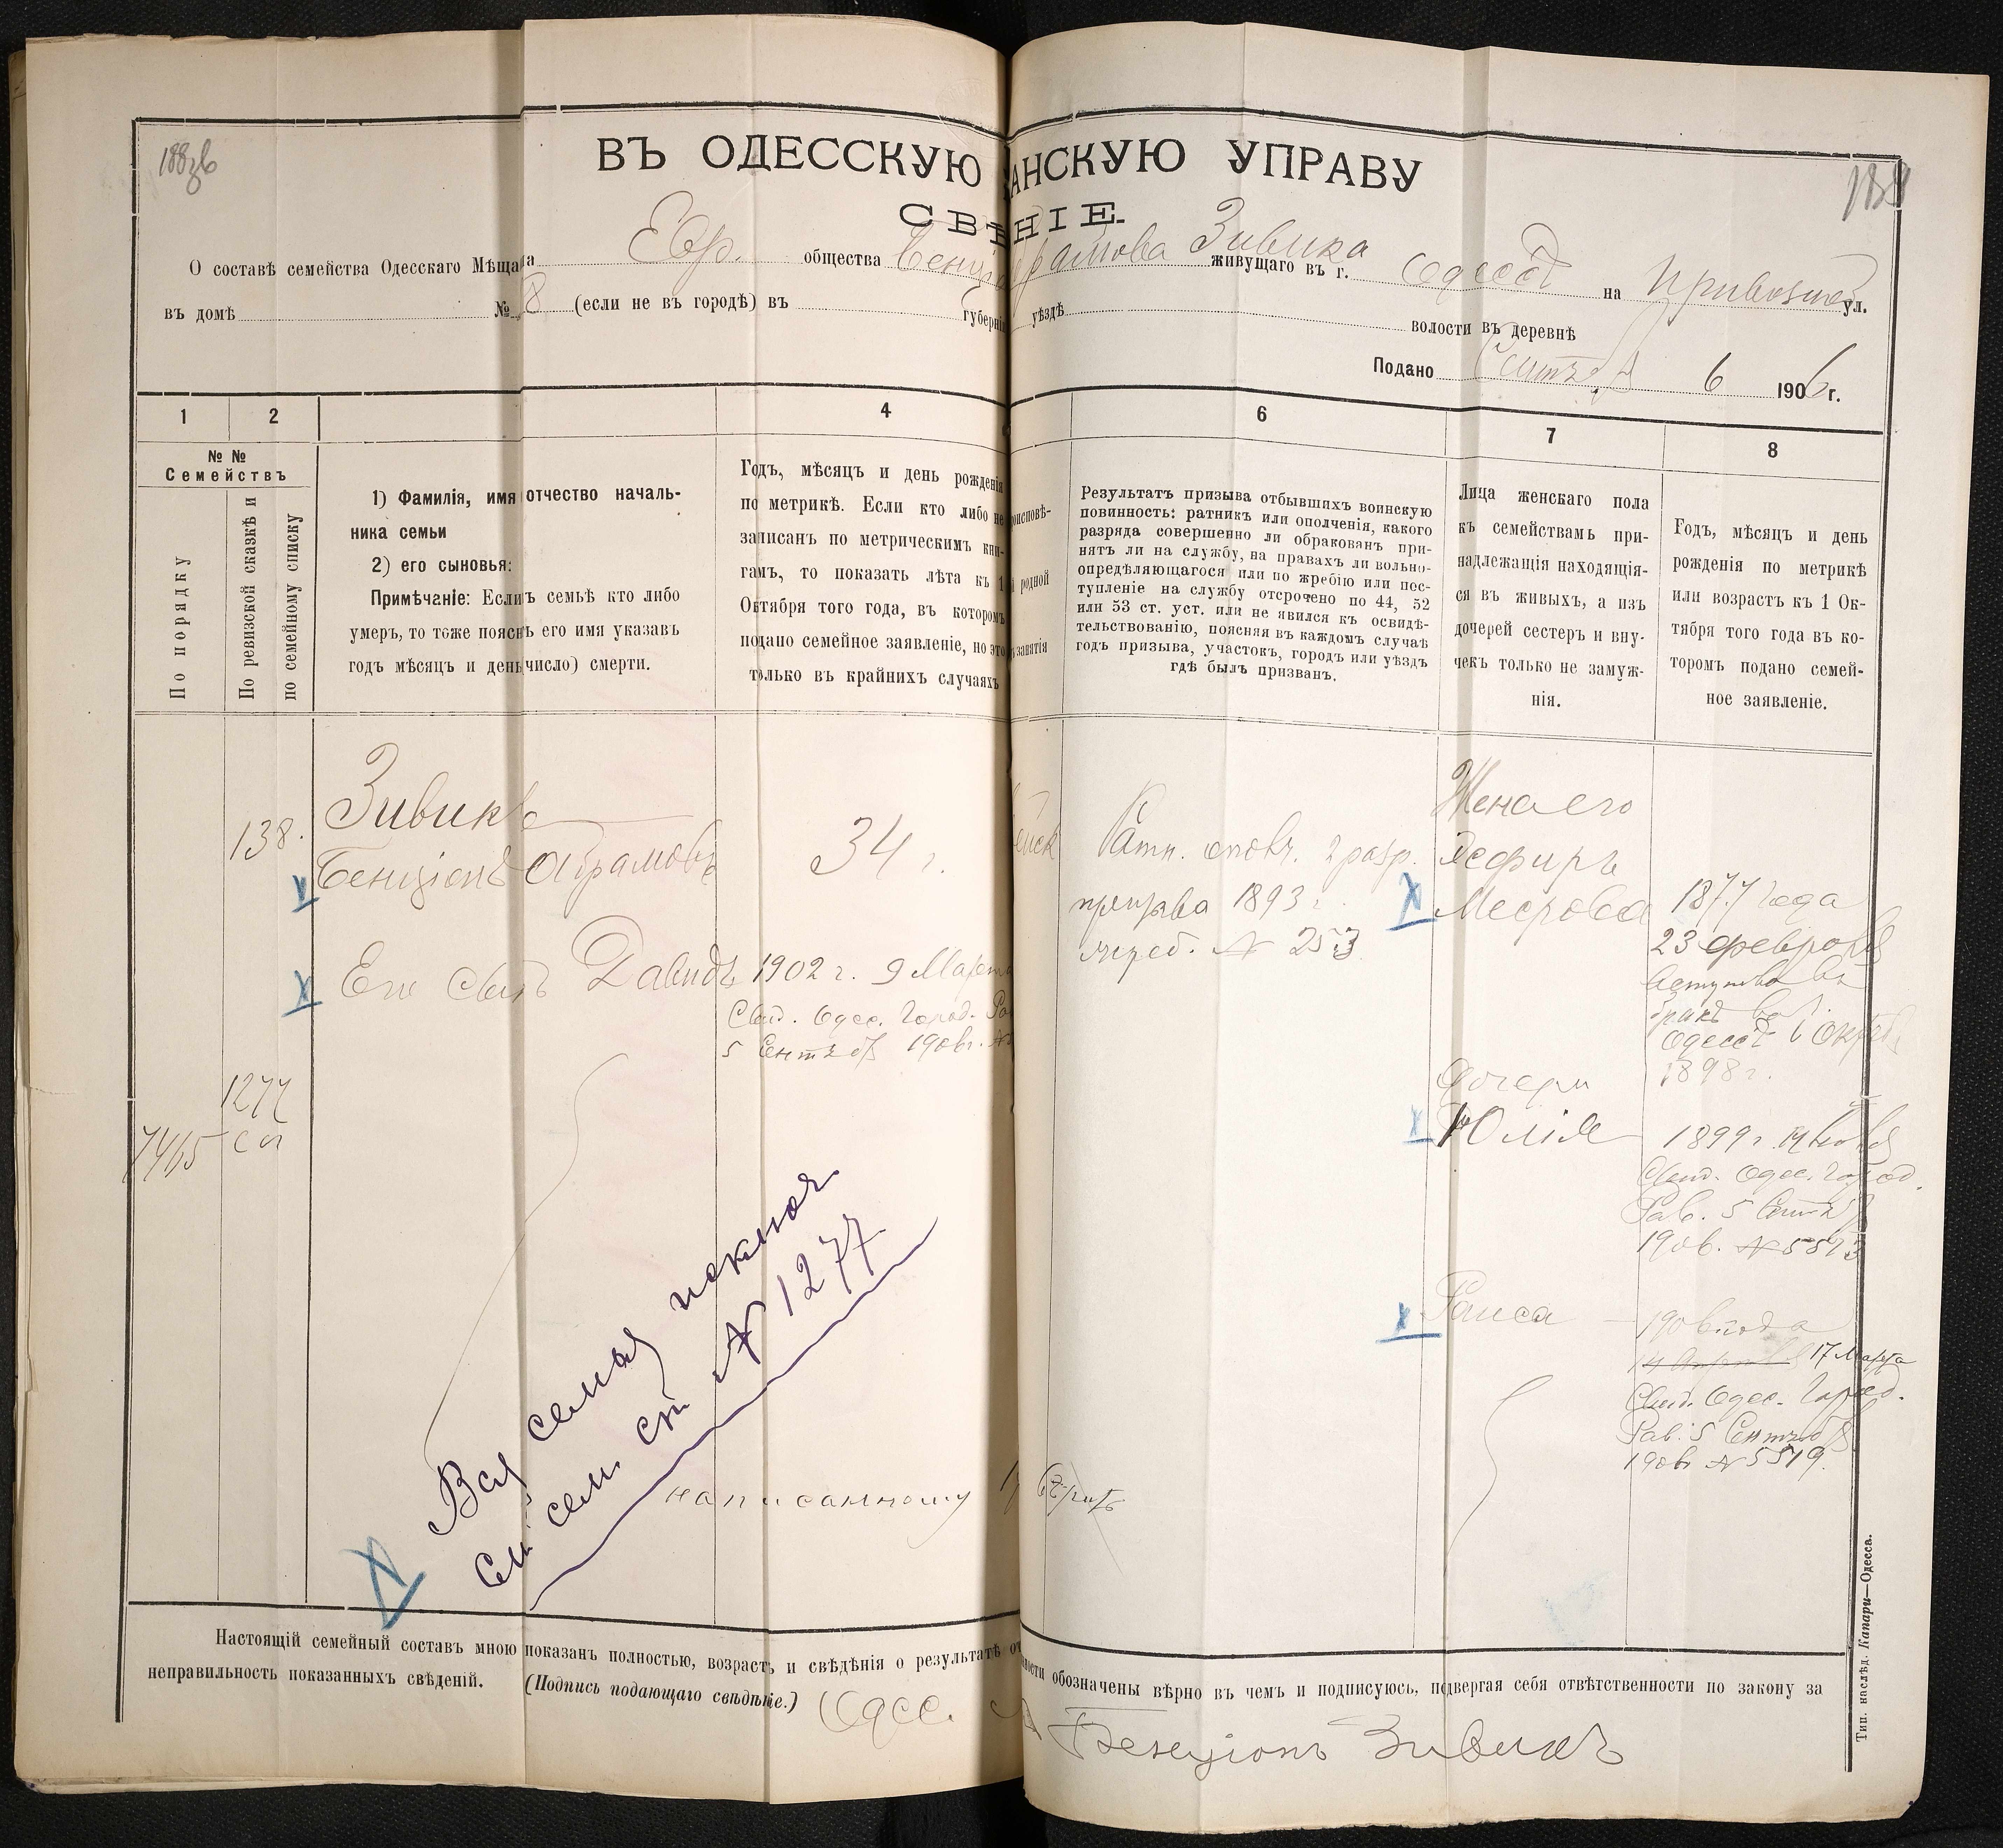 188
ВЪ ОДЕССКУЮ АНСКУЮ УПРАВУ
СВѢНІЕ.
О составѣ семейства Одесскаго Мѣщана Евр. общества Бенціо Абрамова Зивика живущаго въ г. Одессѣ на Привозной ул.
въ домѣ № 8 (если не въ городѣ) въ губерні уѣздѣ волости въ деревнѣ
Подано Сентября 6 1906 г.
1 2 4 6 7 8
№ №
Семействъ
По порядку
По ревизской сказкѣ и
по семейному списку
1) Фамилія, имя отчество началь-
ника семьи
2) его сыновья:
Примѣчаніе: Если ъ семьѣ кто либо
умеръ, то тоже поясн ь его имя указавъ
годъ мѣсяцъ и день число) смерти.
Годъ, мѣсяцъ и день рожденія
по метрикѣ. Если кто либо не
записанъ по метрическимъ кни-
гамъ, то показать лѣта къ 1
Октября того года, въ которомъ
подано семейное заявленіе, но это
только въ крайнихъ случаяхъ
оисповѣ-
й родной
занятія
Результатъ призыва отбывшихъ воинскую
повинность: ратникъ или ополченія, какого
разряда совершенно ли обракованъ при-
нятъ ли на службу, на правахъ ли вольно-
опредѣляющагося или по жребію или пос-
тупленіе на службу отсрочено по 44, 52
или 53 ст. уст. или не явился къ освидѣ-
тельствованію, поясняя въ каждомъ случаѣ
годъ призыва, участокъ, городъ или уѣздъ
гдѣ былъ призванъ.
Лица женскаго пола
къ семействамъ при-
надлежащія находящія-
ся въ живыхъ, а изъ
дочерей сестеръ и вну-
чекъ только не замуж-
нія.
Годъ, мѣсяцъ и день
рожденія по метрикѣ
или возрастъ къ 1 Ок-
тября того года въ ко-
торомъ подано семей-
ное заявленіе.
138.
Зивикъ
Бенціонъ Абрамовъ
34 г.
Его сынъ Давидъ
1902 г. 9 Марта
Свид. Одес. Город. Ра
5 Сентяб 1906 г. №
1277
сп
7465
Ратн. ополч. 2 разр.
призыва 1893 г.
жреб. № 253
Жена его
Эсфирь
Меерова
1877 года
23 февраля
вступила въ
бракъ въ г.
Одессѣ 6 Октяб.
1898 г.
Дочери
Юлія
1899 г. 14
Свид. Одес. Город.
Рав. 5 Сентяб
1906. № 5573
Раиса
1906 года
17 Марта
Свид. Одес. Город.
Рав. 5 Сентяб
1906 № 5519.
Вся семья исключ
См. сем. сп. № 1277
написанному вѣрить
Настоящій семейный составъ мною показанъ полностью, возрастъ и свѣдѣнія о результатѣ от ности обозначены вѣрно въ чемъ и подписуюсь, подвергая себя отвѣтственности по закону за
неправильность показанныхъ свѣдѣній. (Подпись подающаго свѣдѣніе.) Одес.
Бенціонъ Зивикъ
Тип. наслѣд. Капари—Одесса.